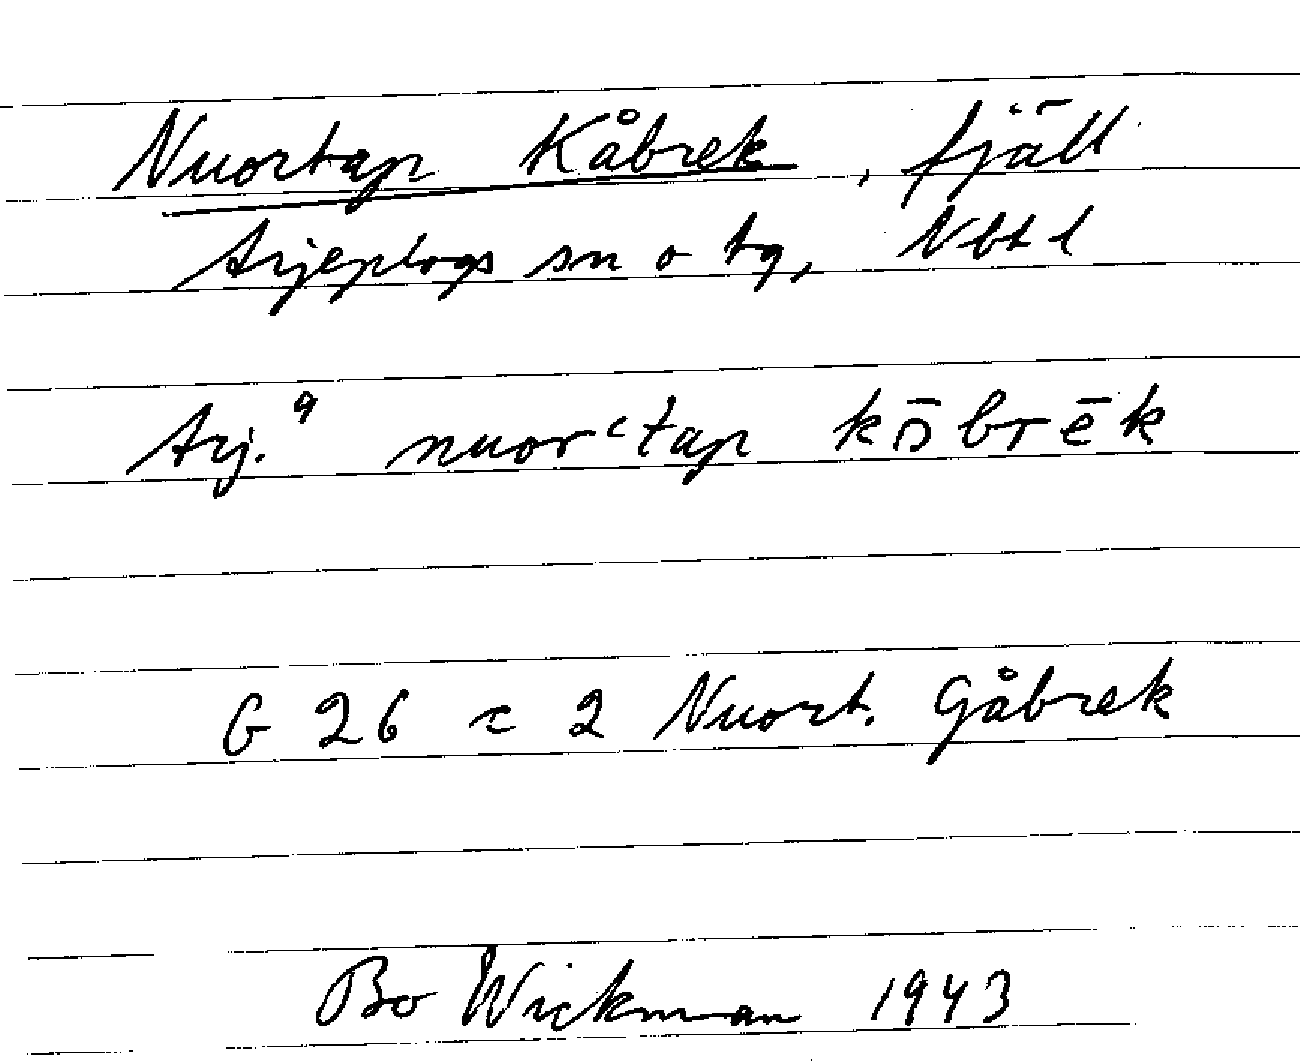 Nuortap Kåbrek, fjäll
Arjeplogs sn o tg, Nbt l
Arj. 9 nuorʿtap kɔ̄brēk
G 26 c 2 Nuort. Gåbrek
Bo Wickman 1943